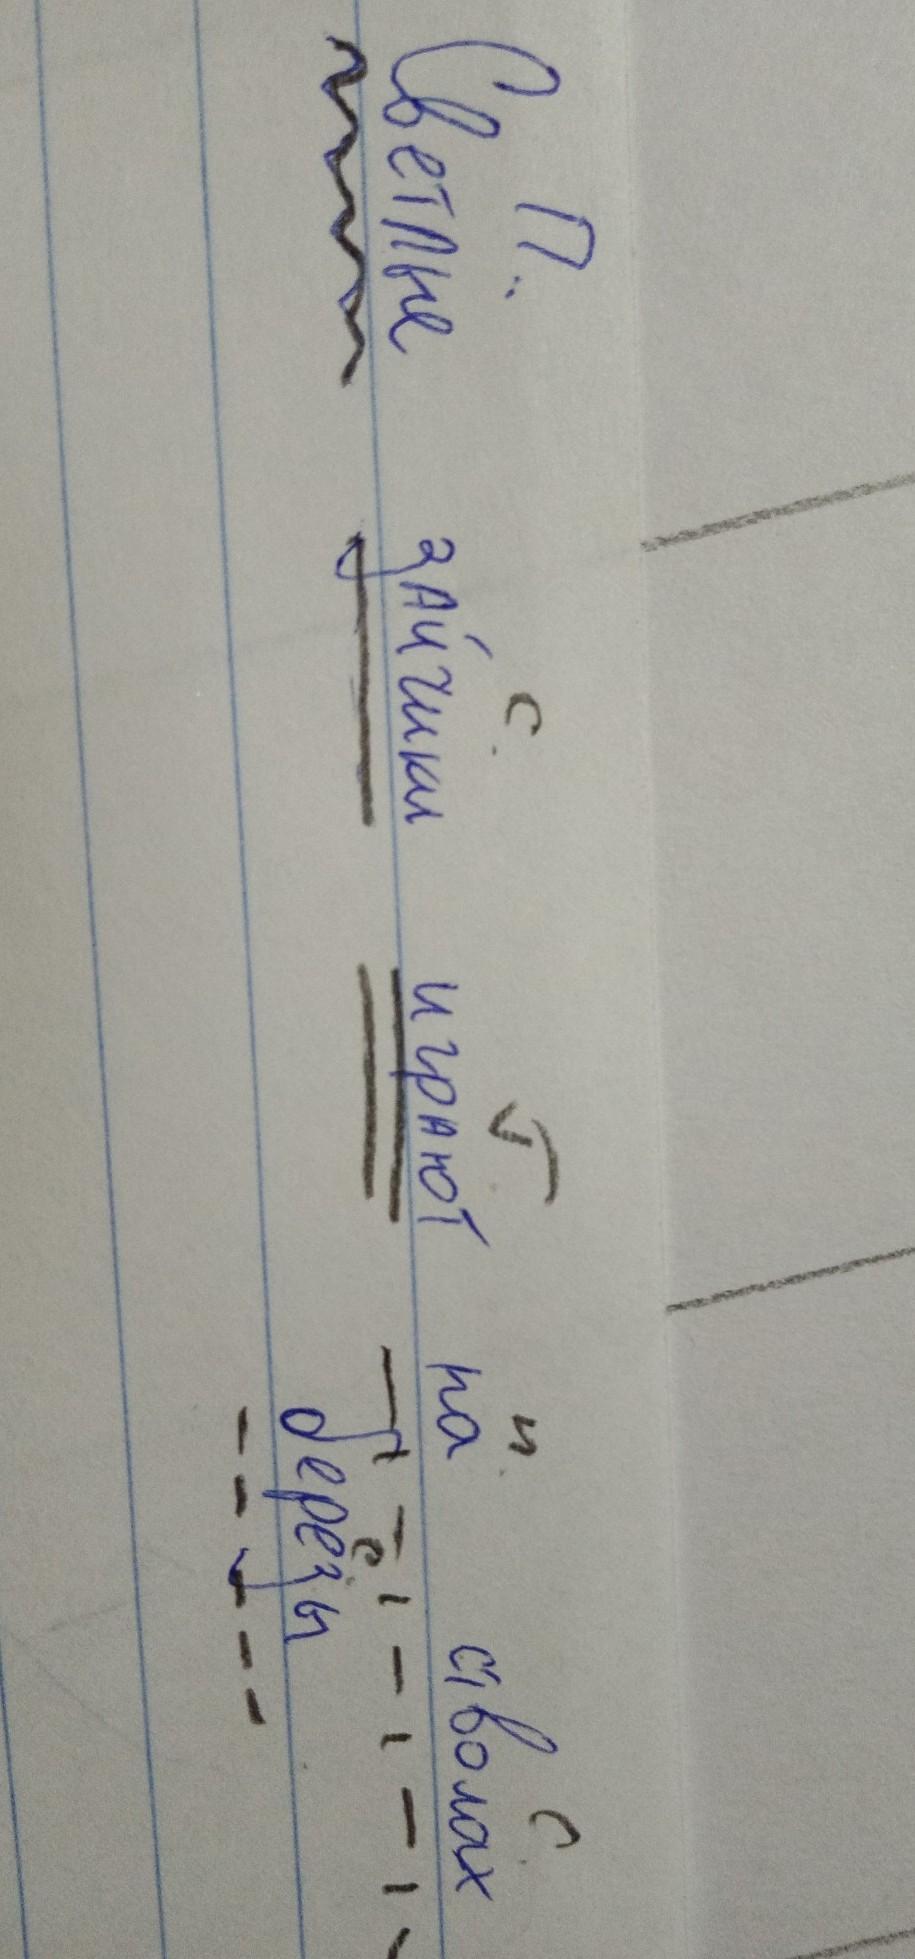 П. с. Г н. с.
Светлые зайчики играют на стволах
с.
берёзы